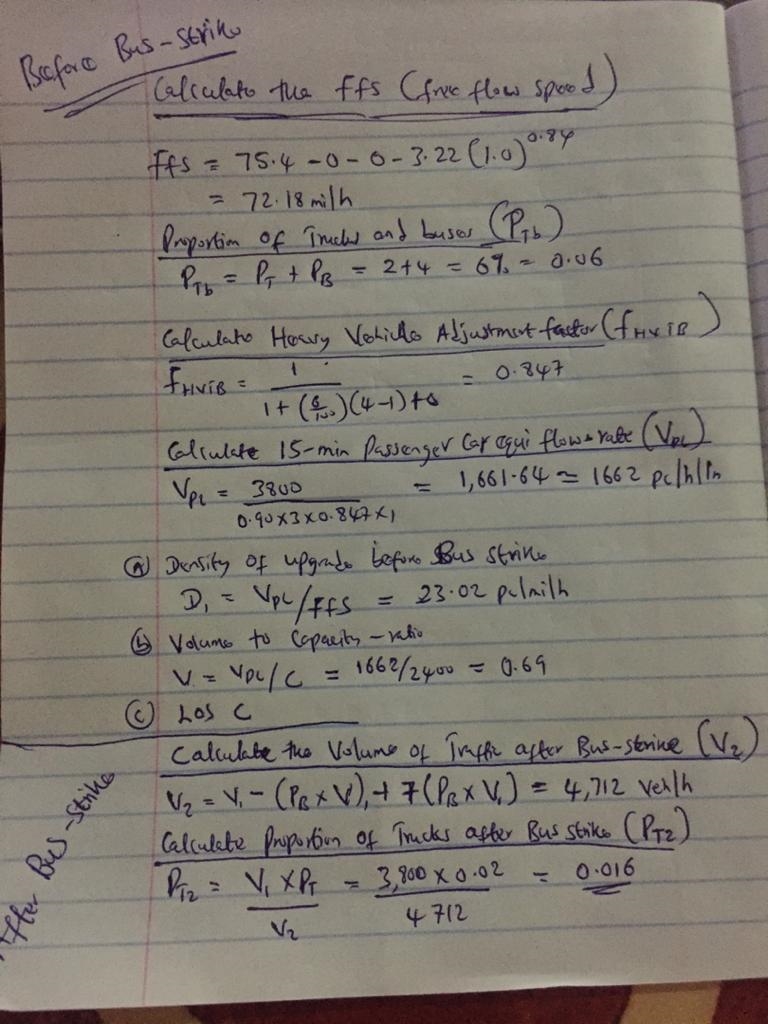 Before Bus-strike
Calculate the ffs (free flow speed)
ffs = 75.4 - 0 - 0 - 3.22 (1.0)^0.84
= 72.18 mi/h
Proportion of Trucks and buses (P_Tb)
P_Tb = P_T + P_B = 2+4 = 6% = 0.06
Calculate Heavy Vehicle Adjustment factor (f_HVTB)
f_HVTB = 1 / 1 + (6/100)(4-1)+0 = 0.847
Calculate 15-min Passenger Car equi flow rate (V_PL)
V_PL = 3800 / 0.90 x 3 x 0.847 x 1 = 1,661.64 ≃ 1662 pc/h/ln
(a) Density of upgrade before Bus strike
D_1 = V_PL/ffs = 23.02 pc/mi/h
(b) Volume to Capacity-ratio
V = V_PL/C = 1662/2400 = 0.69
(c) LOS C
After Bus-strike
Calculate the Volume of Traffic after Bus-strike (V_2)
V_2 = V_1 - (P_B x V)_1 + 7(P_B x V_1) = 4,712 veh/h
Calculate Proportion of Trucks after Bus strike (P_T2)
P_T2 = V_1 x P_T / V_2 = 3,800 x 0.02 / 4712 = 0.016